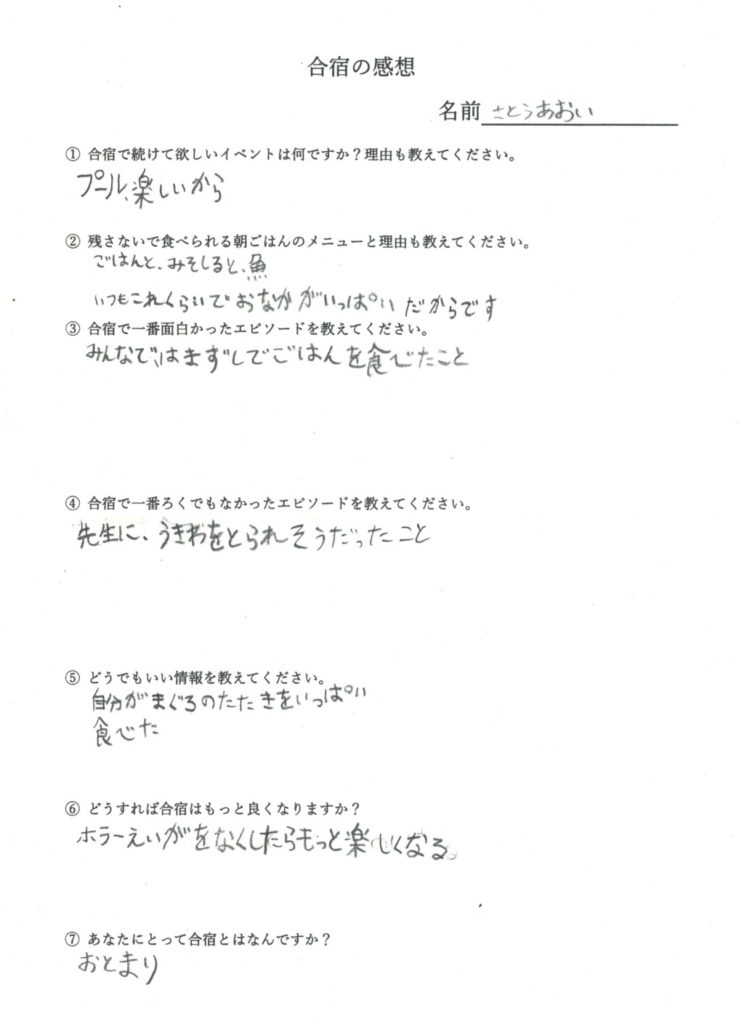 合宿の感想
名前 さとうあおい
① 合宿で続けて欲しいイベントは何ですか？理由も教えてください。
プール、楽しいから
② 残さないで食べられる朝ごはんのメニューと理由も教えてください。
ごはんと、みそしると、魚
いつもこれくらいでおなかがいっぱいだからです
③ 合宿で一番面白かったエピソードを教えてください。
みんなで、はまずしでごはんを食べたこと
④ 合宿で一番ろくでもなかったエピソードを教えてください。
先生に、うきわをとられそうだったこと
⑤ どうでもいい情報を教えてください。
自分がまぐろのたたきをいっぱい
食べた
⑥ どうすれば合宿はもっと良くなりますか？
ホラーえいがをなくしたらもっと楽しくなる。
⑦ あなたにとって合宿とはなんですか？
おとまり